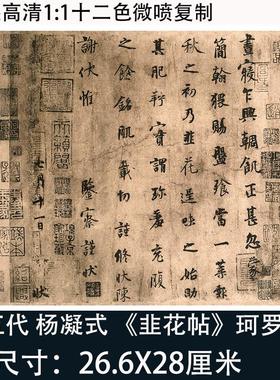 高清1:1十二色微喷复制
晝寢乍興輖飢正甚
簡翰猥賜盤飧當一葉報
秋之初乃韭花逞味之始助
其肥羜實謂珍羞充腹
之餘銘肌載切謹修狀陳
謝伏惟
鑒察謹狀
七月十一日 狀
代 杨凝式 《韭花帖》珂罗
尺寸：26.6X28厘米